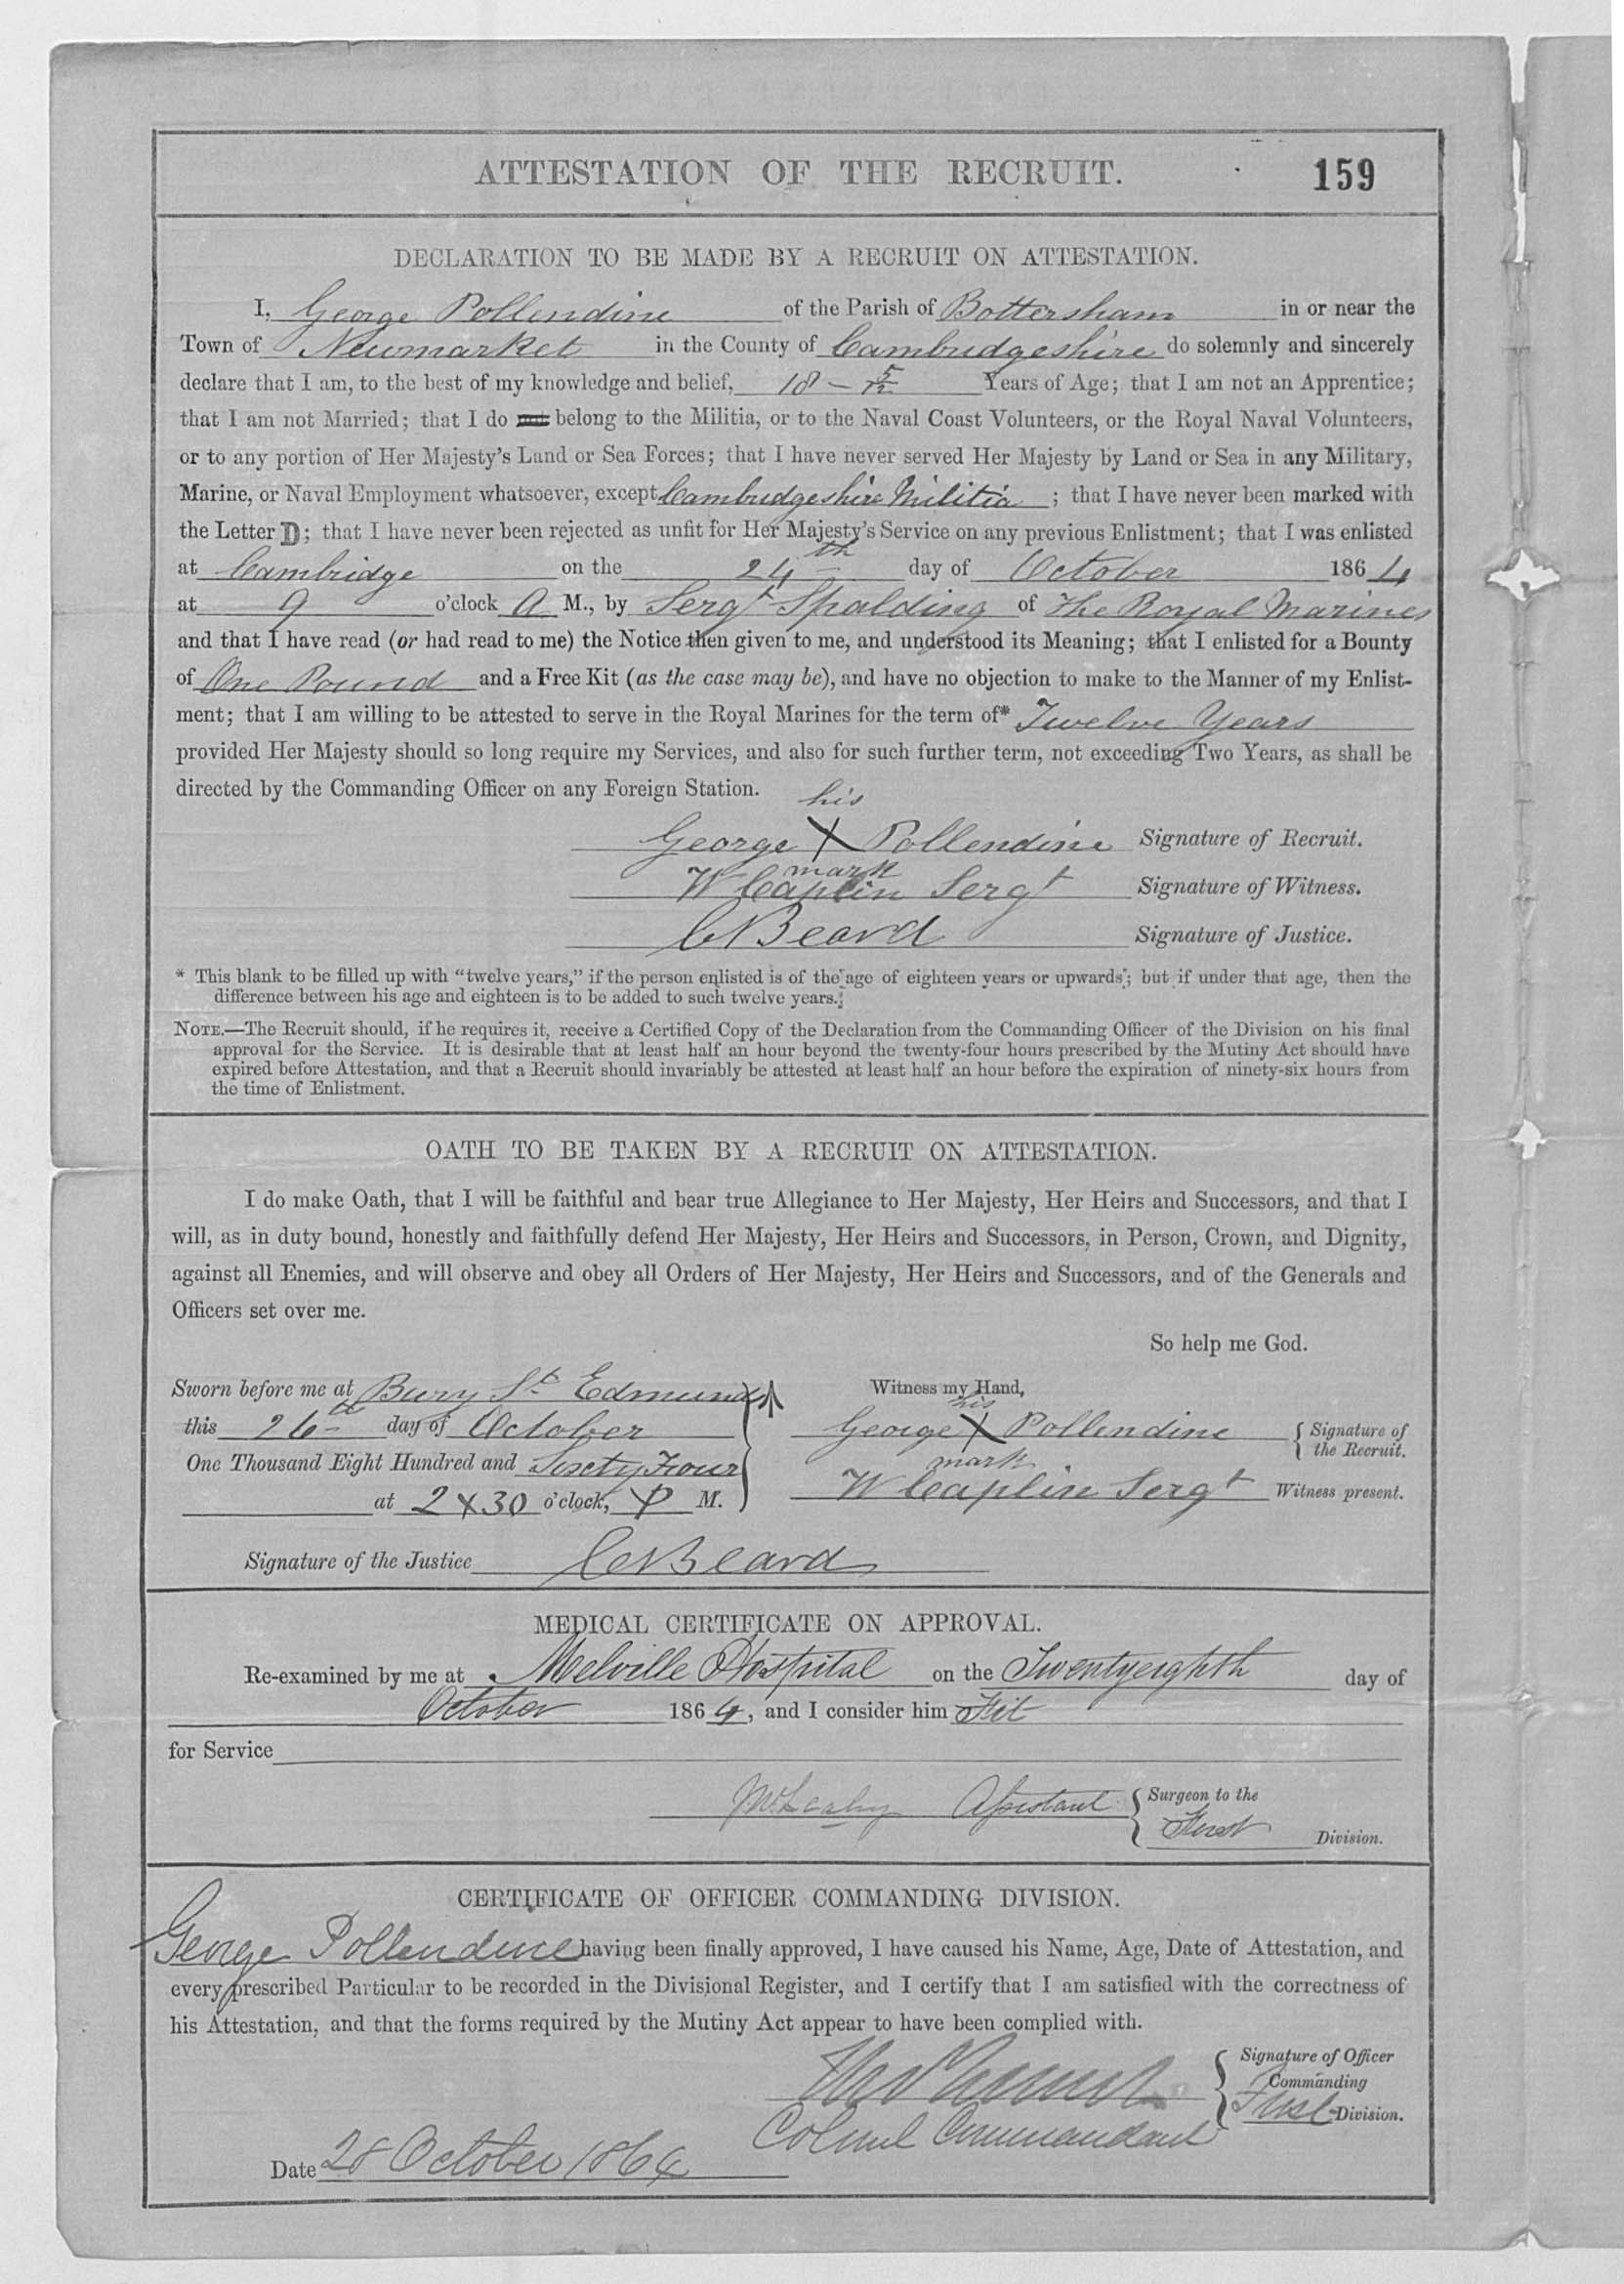 ATTESTATION OF THE RECRUIT. 159
DECLARATION TO BE MADE BY A RECRUIT ON ATTESTATION.
I, George Pollendine of the Parish of Bottersham in or near the
Town of Newmarket in the County of Cambridgeshire do solemnly and sincerely
declare that I am, to the best of my knowledge and belief, 18 – 5/12 Years of Age; that I am not an Apprentice;
that I am not Married; that I do not belong to the Militia, or to the Naval Coast Volunteers, or the Royal Naval Volunteers,
or to any portion of Her Majesty's Land or Sea Forces; that I have never served Her Majesty by Land or Sea in any Military,
Marine, or Naval Employment whatsoever, except Cambridgeshire Militia ; that I have never been marked with
the Letter D; that I have never been rejected as unfit for Her Majesty's Service on any previous Enlistment; that I was enlisted
at Cambridge on the 24th day of October 1864
at 9 o'clock A M., by Sergt Spalding of The Royal Marines
and that I have read (or had read to me) the Notice then given to me, and understood its Meaning; that I enlisted for a Bounty
of One Pound and a Free Kit (as the case may be), and have no objection to make to the Manner of my Enlist-
ment; that I am willing to be attested to serve in the Royal Marines for the term of* Twelve Years
provided Her Majesty should so long require my Services, and also for such further term, not exceeding Two Years, as shall be
directed by the Commanding Officer on any Foreign Station.
his
George X Pollendine Signature of Recruit.
mark
W Caplin Sergt Signature of Witness.
C Beard Signature of Justice.
* This blank to be filled up with "twelve years," if the person enlisted is of the age of eighteen years or upwards; but if under that age, then the
difference between his age and eighteen is to be added to such twelve years.
NOTE.—The Recruit should, if he requires it, receive a Certified Copy of the Declaration from the Commanding Officer of the Division on his final
approval for the Service. It is desirable that at least half an hour beyond the twenty-four hours prescribed by the Mutiny Act should have
expired before Attestation, and that a Recruit should invariably be attested at least half an hour before the expiration of ninety-six hours from
the time of Enlistment.
OATH TO BE TAKEN BY A RECRUIT ON ATTESTATION.
I do make Oath, that I will be faithful and bear true Allegiance to Her Majesty, Her Heirs and Successors, and that I
will, as in duty bound, honestly and faithfully defend Her Majesty, Her Heirs and Successors, in Person, Crown, and Dignity,
against all Enemies, and will observe and obey all Orders of Her Majesty, Her Heirs and Successors, and of the Generals and
Officers set over me.
So help me God.
Sworn before me at Bury St Edmunds
this 26th day of October
One Thousand Eight Hundred and Sixty Four
at 2 X 30 o'clock, P M.
Witness my Hand,
his
George X Pollendine Signature of
the Recruit.
mark
W Caplin Sergt Witness present.
Signature of the Justice C Beard
MEDICAL CERTIFICATE ON APPROVAL.
Re-examined by me at Melville Hospital on the Twentyeighth day of
October 1864, and I consider him Fit
for Service
Assistant Surgeon to the
First Division.
CERTIFICATE OF OFFICER COMMANDING DIVISION.
George Pollendine having been finally approved, I have caused his Name, Age, Date of Attestation, and
every prescribed Particular to be recorded in the Divisional Register, and I certify that I am satisfied with the correctness of
his Attestation, and that the forms required by the Mutiny Act appear to have been complied with.
Signature of Officer
Commanding
First Division.
Colonel Commandant
Date 28 October 1864